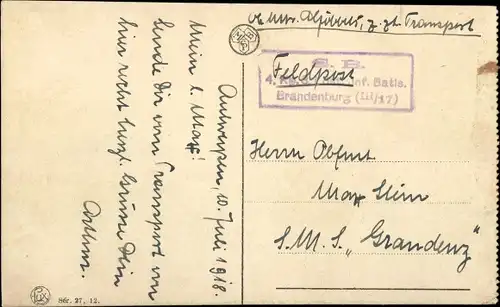 Transport
Feldpost
S. B.
4. Inf. Batls.
Brandenburg (III/17)
Antwerpen, 10. Juli 1918.
Mein l. Max!
Sende Dir vom Transport von
hier recht herzl. Grüsse Dein
Arthur.
Herrn Obfmt
Max Stein
S.M.S. „Graudenz"
Sér. 27, 12.